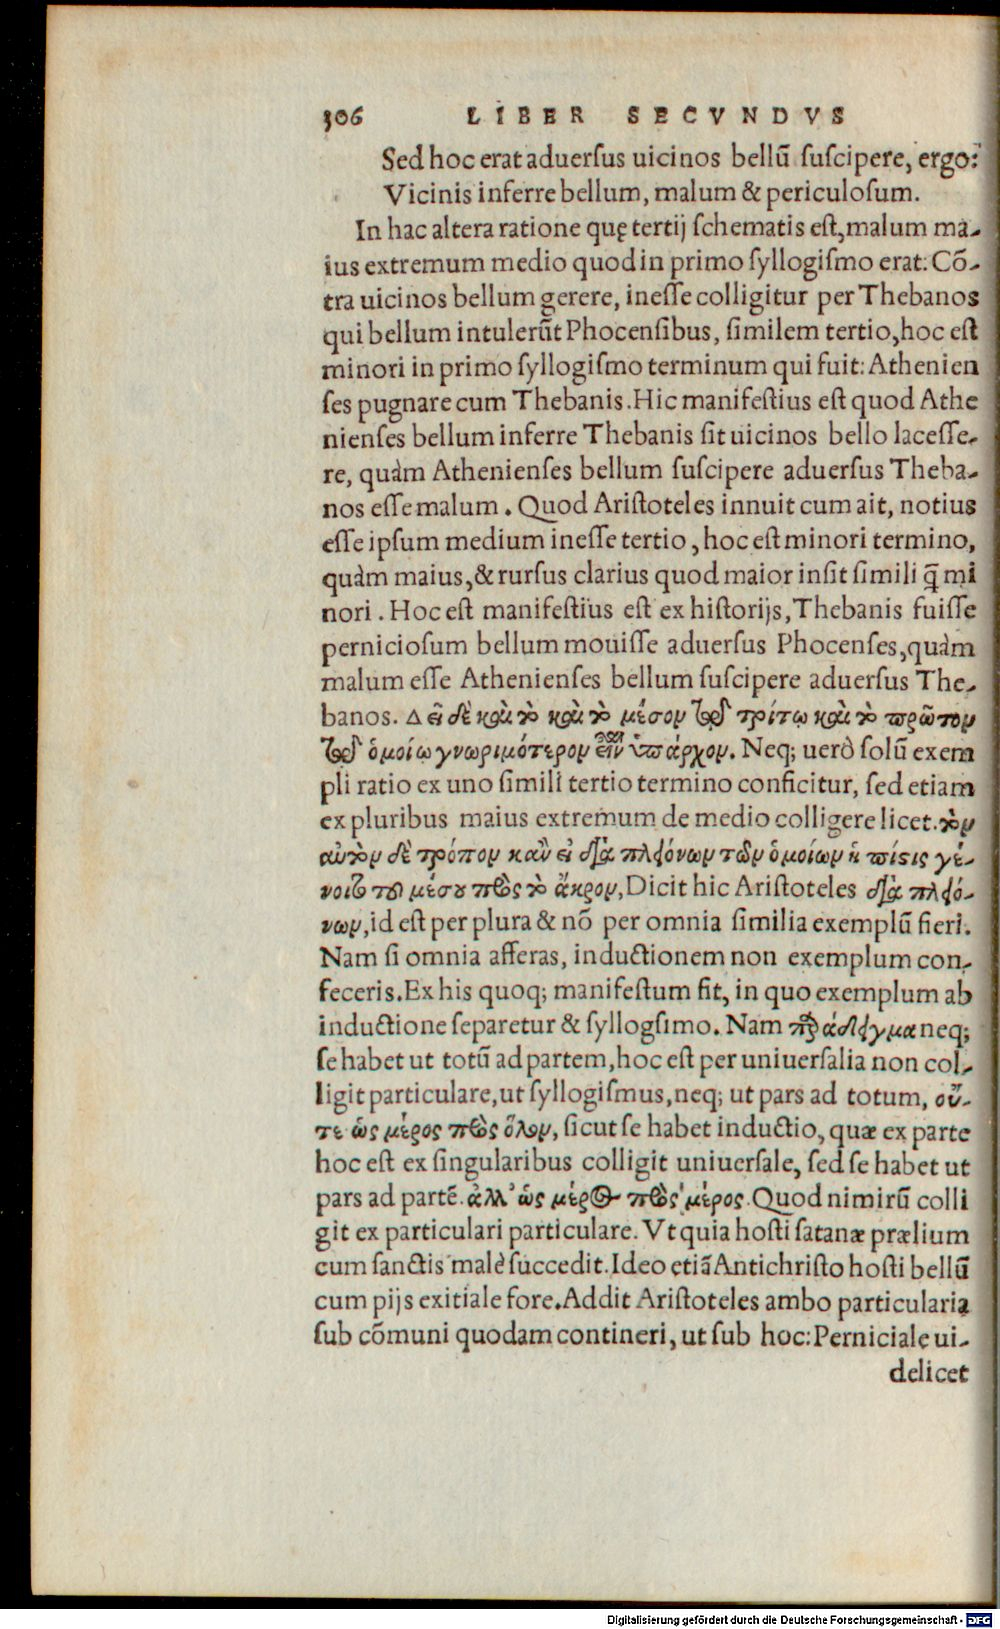 306 LIBER SECVNDVS
Sed hoc erat aduerſus uicinos bellū ſuſcipere, ergo:
Vicinis inferre bellum, malum & periculoſum.
In hac altera ratione quę tertij ſchematis eſt, malum ma-
ius extremum medio quod in primo ſyllogiſmo erat: Cō-
tra uicinos bellum gerere, ineſſe colligitur per Thebanos
qui bellum intulerūt Phocenſibus, ſimilem tertio, hoc eſt
minori in primo ſyllogiſmo terminum qui fuit: Athenien
ſes pugnare cum Thebanis. Hic manifeſtius eſt quod Athe
nienſes bellum inferre Thebanis ſit uicinos bello laceſſe-
re, quàm Athenienſes bellum ſuſcipere aduerſus Theba-
nos eſſe malum. Quod Ariſtoteles innuit cum ait, notius
eſſe ipſum medium ineſſe tertio, hoc eſt minori termino,
quàm maius, & rurſus clarius quod maior inſit ſimili q̄ mi
nori. Hoc eſt manifeſtius eſt ex hiſtorijs, Thebanis fuiſſe
pernicioſum bellum mouiſſe aduerſus Phocenſes, quàm
malum eſſe Athenienſes bellum ſuſcipere aduerſus The-
banos. Δεῖ δὲ καὶ τὸ καὶ τὸ μέσον τῷ τρίτῳ καὶ τὸ πρῶτον
τῷ ὁμοίῳ γνωριμότερον εἶν ὑπάρχον. Neq; uerò ſolū exem
pli ratio ex uno ſimili tertio termino conficitur, ſed etiam
ex pluribus maius extremum de medio colligere licet. τὸν
αὐτὸν δὲ τρόπον κἂν εἰ διὰ πλειόνων τῶν ὁμοίων ἡ πίστις γέ-
νοιτο τοῦ μέσου πρὸς τὸ ἄκρον, Dicit hic Ariſtoteles διὰ πλειό-
νων, id eſt per plura & nō per omnia ſimilia exemplū fieri.
Nam ſi omnia afferas, inductionem non exemplum con-
feceris. Ex his quoq; manifeſtum fit, in quo exemplum ab
inductione ſeparetur & ſyllogſimo. Nam παράδειγμα neq;
ſe habet ut totū ad partem, hoc eſt per uniuerſalia non col-
ligit particulare, ut ſyllogiſmus, neq; ut pars ad totum, οὔ-
τε ὡς μέρος πρὸς ὅλον, ſicut ſe habet inductio, quæ ex parte
hoc eſt ex ſingularibus colligit uniuerſale, ſed ſe habet ut
pars ad partē. ἀλλ' ὡς μέρος πρὸς μέρος. Quod nimirū colli
git ex particulari particulare. Vt quia hoſti ſatanæ prælium
cum ſanctis malè ſuccedit. Ideo etiā Antichriſto hoſti bellū
cum pijs exitiale fore. Addit Ariſtoteles ambo particularia
ſub cōmuni quodam contineri, ut ſub hoc: Perniciale ui-
delicet
Digitalisierung gefördert durch die Deutsche Forschungsgemeinschaft - DFG